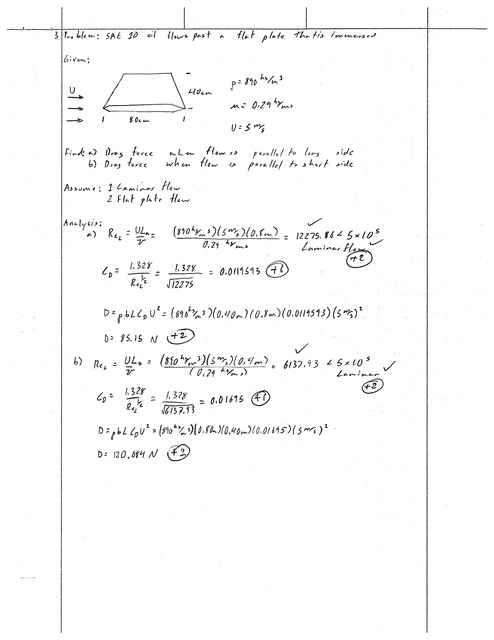 3 Problem: SAE 10 oil flows past a flat plate that is immersed
Given:
U
40cm
80cm
ρ = 890 kg/m³
μ = 0.29 kg/ms
U = 5 m/s
Find: a) Drag force when flow is parallel to long side
b) Drag force when flow is parallel to short side
Assume: 1 Laminar flow
2 Flat plate flow
Analysis:
a) Re_L = UL/ν = (890 kg/m³)(5 m/s)(0.8m) / 0.29 kg/ms = 12275.86 < 5×10⁵ ✓
Laminar flow ✓
+2
C_D = 1.328 / Re_L^½ = 1.328 / √12275 = 0.0119593 +1
D = ρbLC_DU² = (890 kg/m³)(0.40m)(0.8m)(0.0119593)(5 m/s)²
D = 85.15 N +2
b) Re_L = UL/ν = (890 kg/m³)(5 m/s)(0.4m) / (0.29 kg/ms) = 6137.93 < 5×10⁵ ✓
Laminar ✓
+2
C_D = 1.328 / Re_L^½ = 1.328 / √6137.93 = 0.01695 +1
D = ρbLC_DU² = (890 kg/m³)(0.8m)(0.40m)(0.01695)(5 m/s)²
D = 120.684 N +2